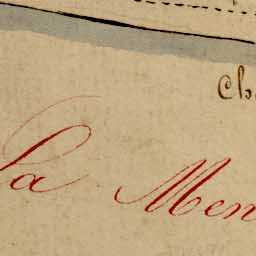 Ch
La Men